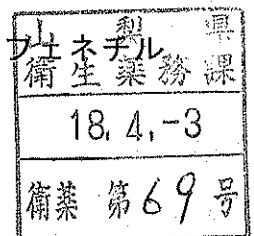 山梨県
フェネチル
衛生薬務課
18.4.-3
衛薬 第69号